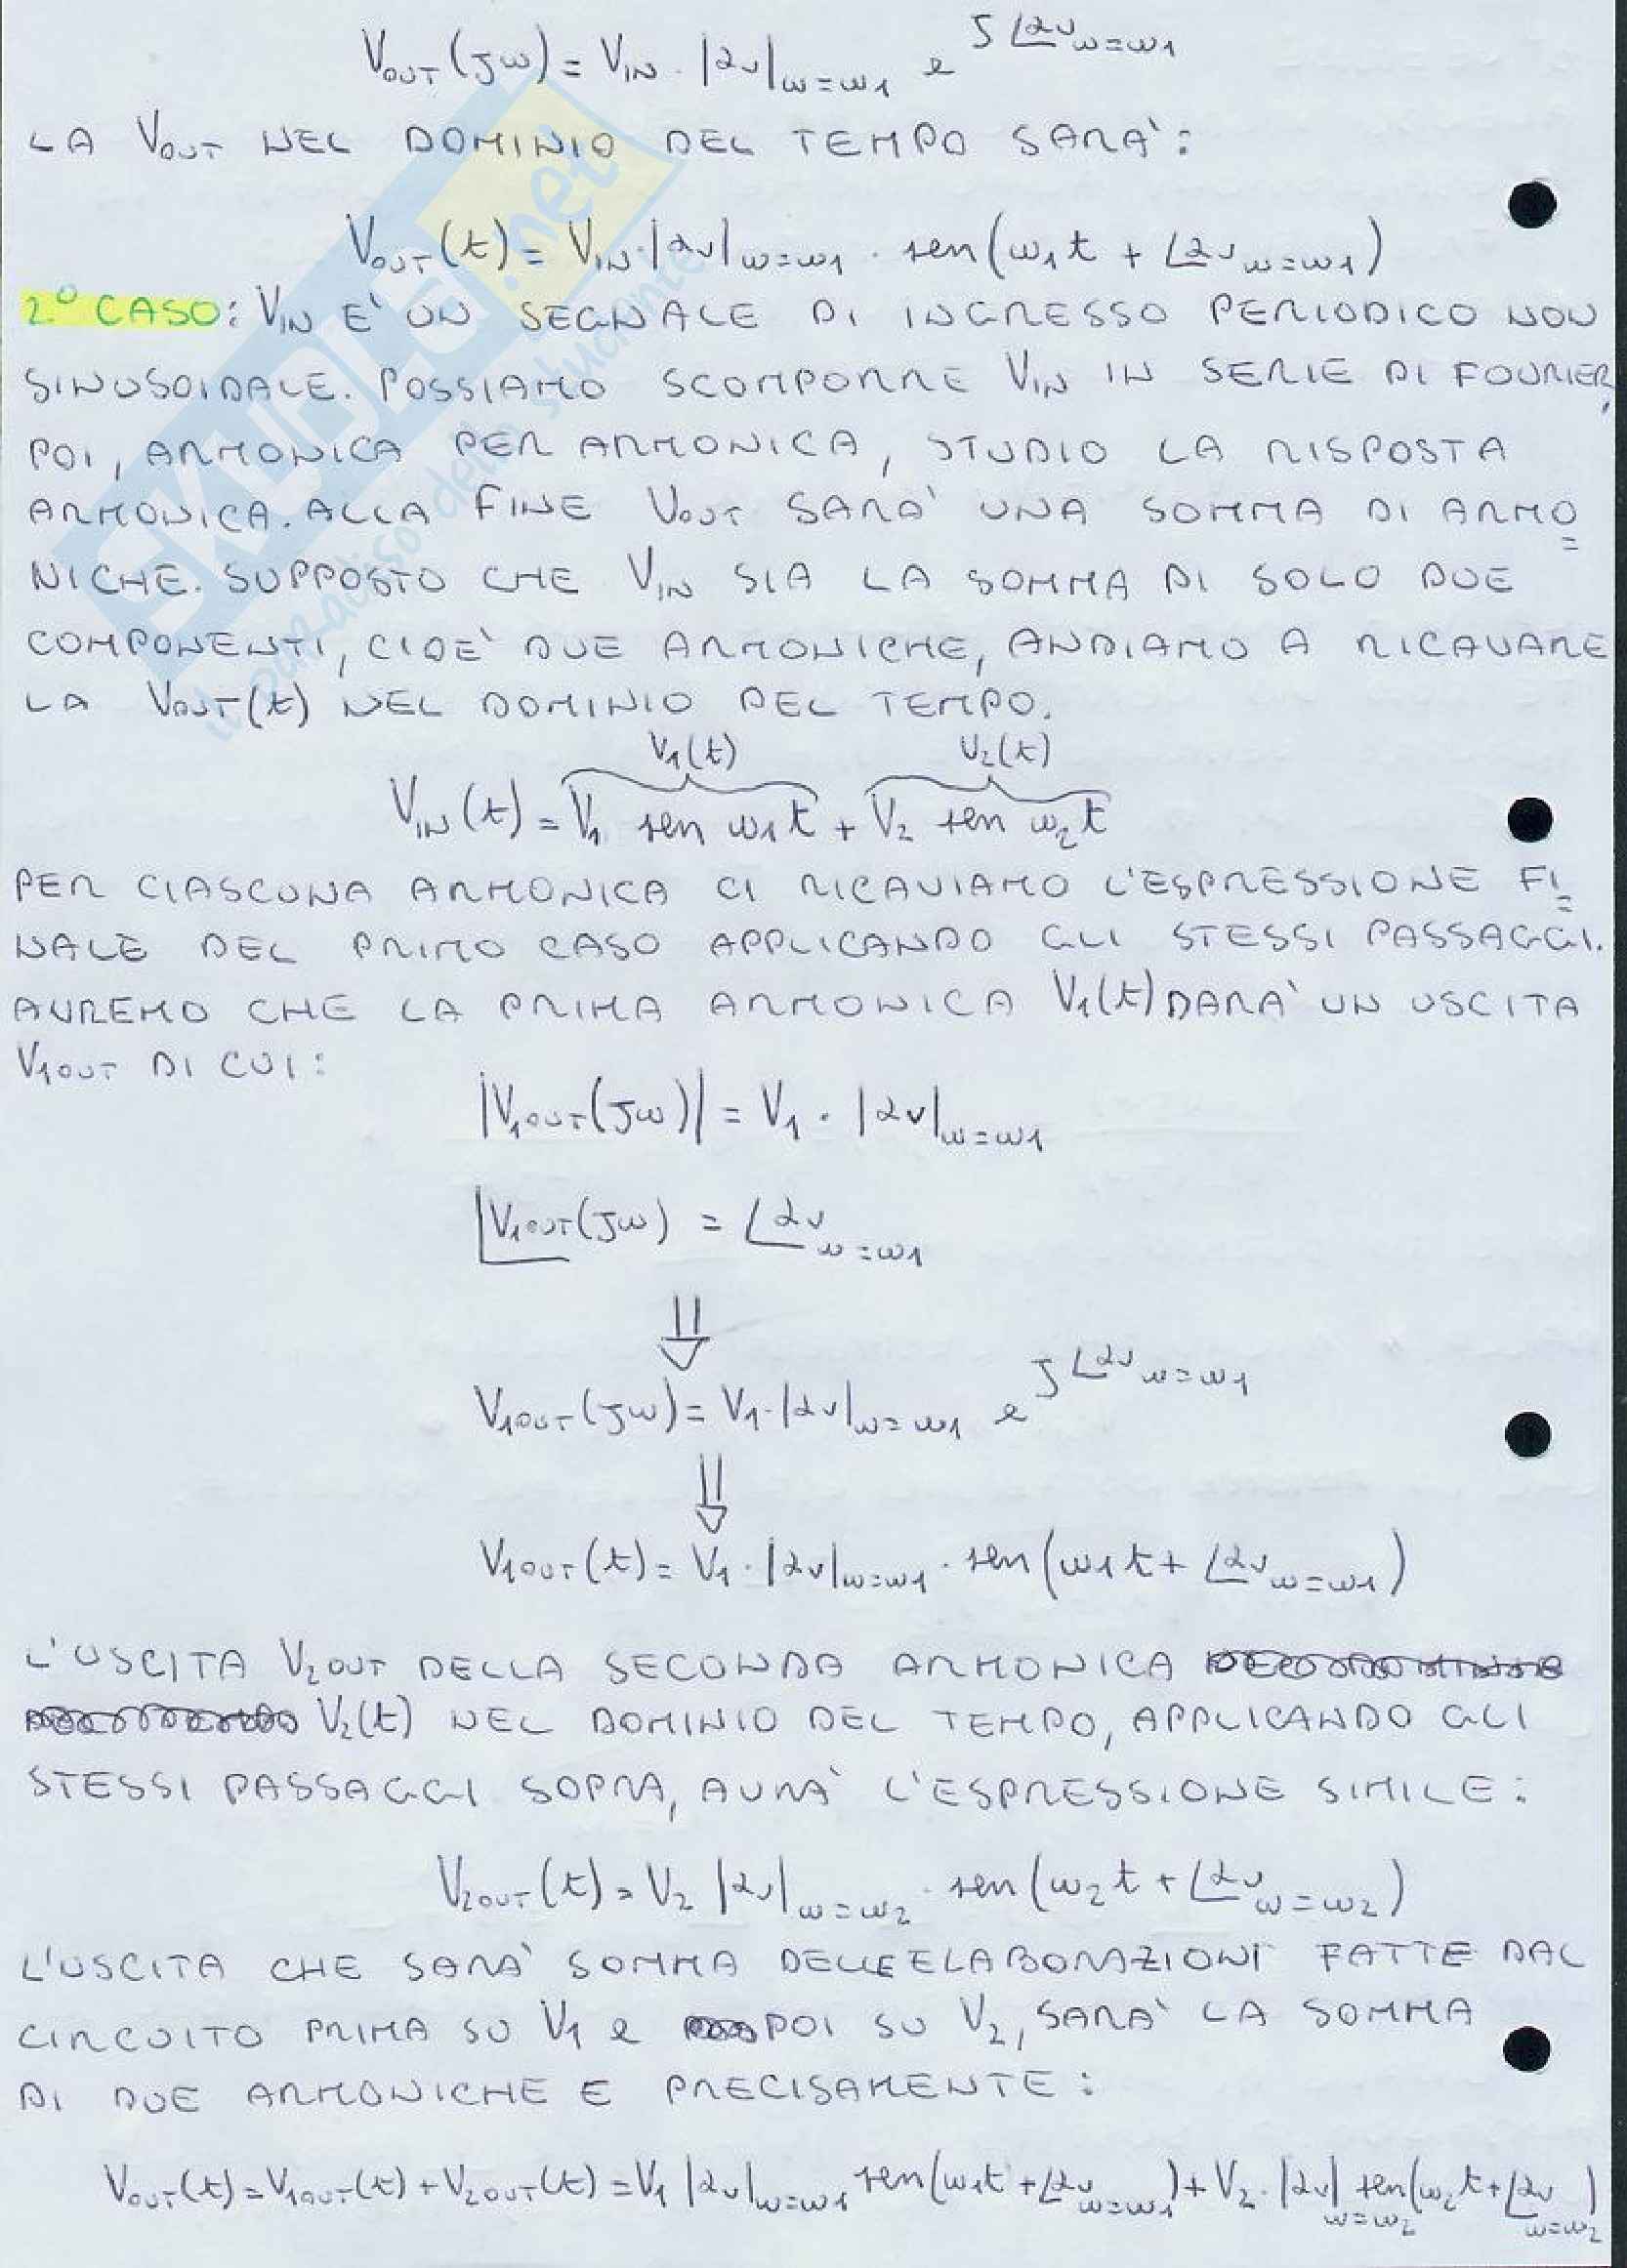 V_OUT(jω) = V_IN · |αv|_ω=ω1 e^{j∠αv_ω=ω1}
LA V_OUT NEL DOMINIO DEL TEMPO SARA':
V_OUT(t) = V_IN · |αv|_ω=ω1 · sen(ω1t + ∠αv_ω=ω1)
2° CASO: V_IN E' UN SEGNALE DI INGRESSO PERIODICO NON
SINUSOIDALE. POSSIAMO SCOMPORRE V_IN IN SERIE DI FOURIER,
POI, ARMONICA PER ARMONICA, STUDIO LA RISPOSTA
ARMONICA. ALLA FINE V_OUT SARA' UNA SOMMA DI ARMO=
NICHE. SUPPOSTO CHE V_IN SIA LA SOMMA DI SOLO DUE
COMPONENTI, CIOE' DUE ARMONICHE, ANDIAMO A RICAVARE
LA V_OUT(t) NEL DOMINIO DEL TEMPO.
V_1(t) V_2(t)
V_IN(t) = V_1 sen ω1t + V_2 sen ω_2t
PER CIASCUNA ARMONICA CI RICAVIAMO L'ESPRESSIONE FI=
NALE DEL PRIMO CASO APPLICANDO GLI STESSI PASSAGGI.
AVREMO CHE LA PRIMA ARMONICA V_1(t) DARA' UN USCITA
V_1OUT DI CUI:
|V_1OUT(jω)| = V_1 · |αv|_ω=ω1
∠V_1OUT(jω) = ∠αv_ω=ω1
⇓
V_1OUT(jω) = V_1 · |αv|_ω=ω1 e^{j∠αv_ω=ω1}
⇓
V_1OUT(t) = V_1 · |αv|_ω=ω1 · sen(ω1t + ∠αv_ω=ω1)
L'USCITA V_2OUT DELLA SECONDA ARMONICA
V_2(t) NEL DOMINIO DEL TEMPO, APPLICANDO GLI
STESSI PASSAGGI SOPRA, AVRA' L'ESPRESSIONE SIMILE:
V_2OUT(t) = V_2 |αv|_ω=ω2 · sen(ω_2t + ∠αv_ω=ω2)
L'USCITA CHE SARA' SOMMA DELLE ELABORAZIONI FATTE DAL
CIRCUITO PRIMA SU V_1 e POI SU V_2, SARA' LA SOMMA
DI DUE ARMONICHE E PRECISAMENTE:
V_OUT(t) = V_1OUT(t) + V_2OUT(t) = V_1 |αv|_ω=ω1 sen(ω1t + ∠αv_ω=ω1) + V_2 · |αv|_ω=ω2 sen(ω_2t + ∠αv_ω=ω2)
SKUOLA.net
il paradiso dello studente